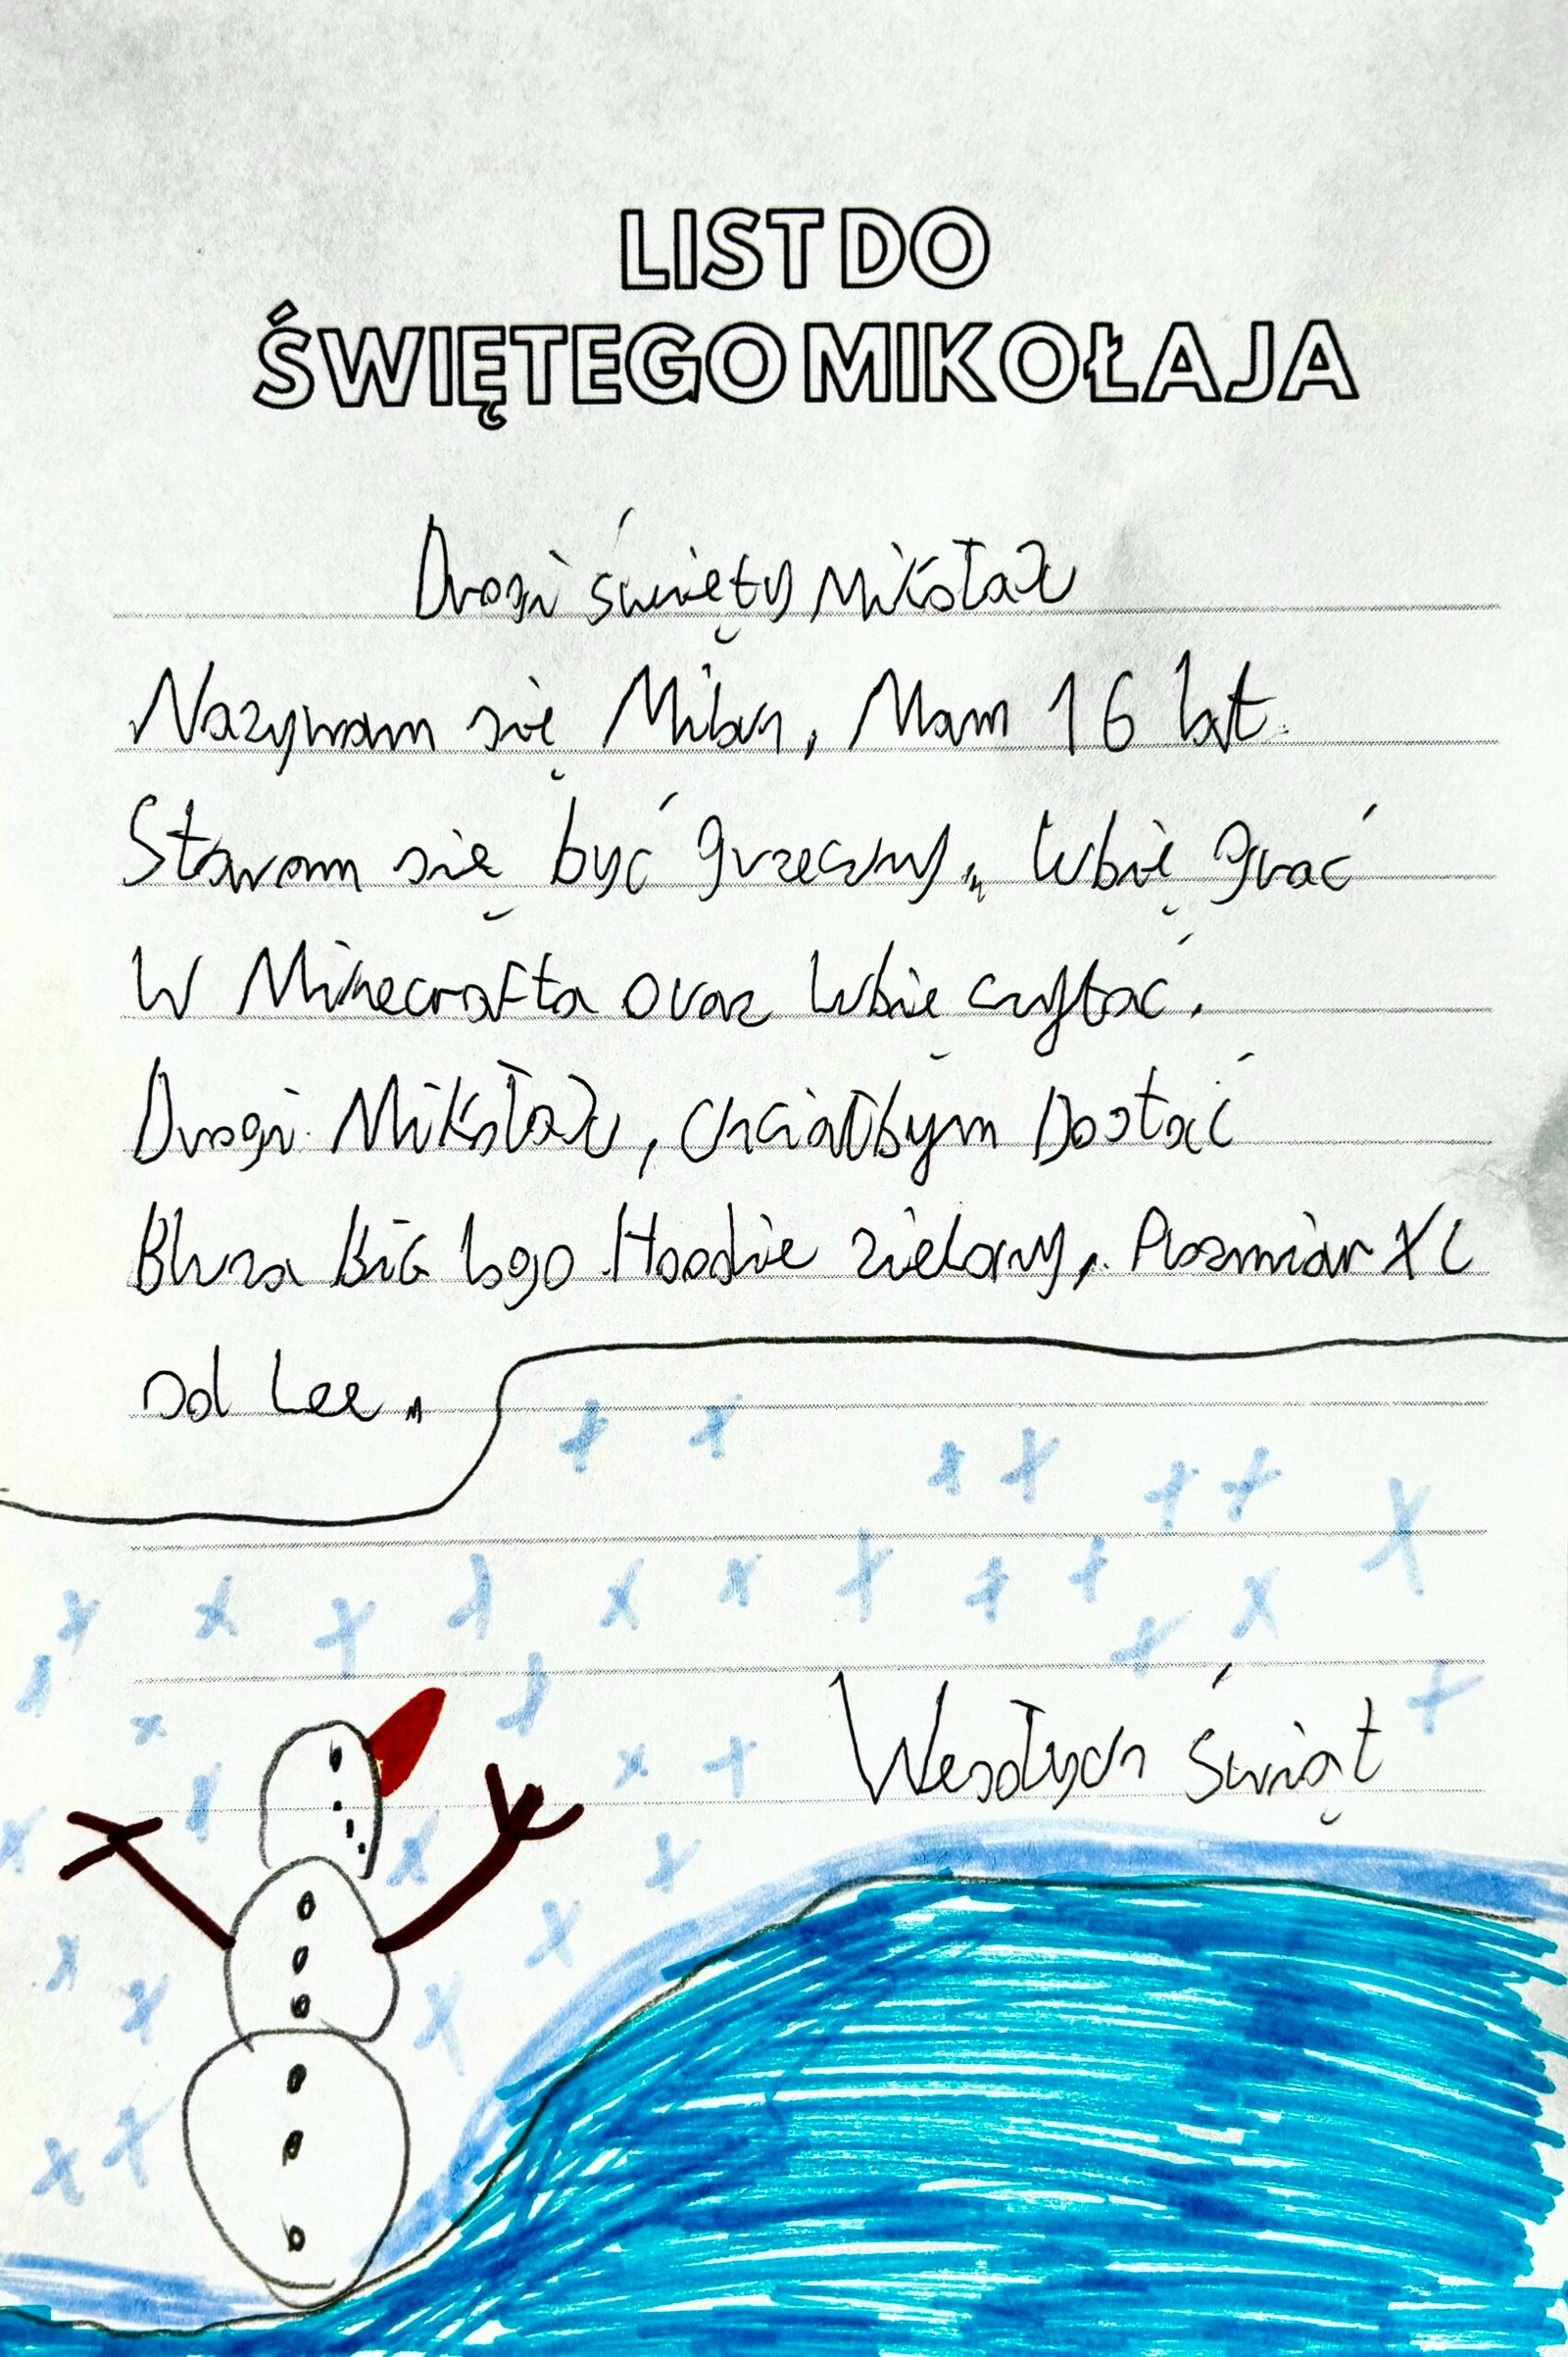 LIST DO
ŚWIĘTEGO MIKOŁAJA
Drogi święty Mikołaju
Nazywam się Milan, Mam 16 lat.
Staram się być grzeczny, lubię grać
W Minecrafta oraz lubię czytać.
Drogi Mikołaju, chciałbym Dostać
Bluza BIG logo Hoodie zielony, Rozmiar XL
od Lee.
Wesołych Świąt